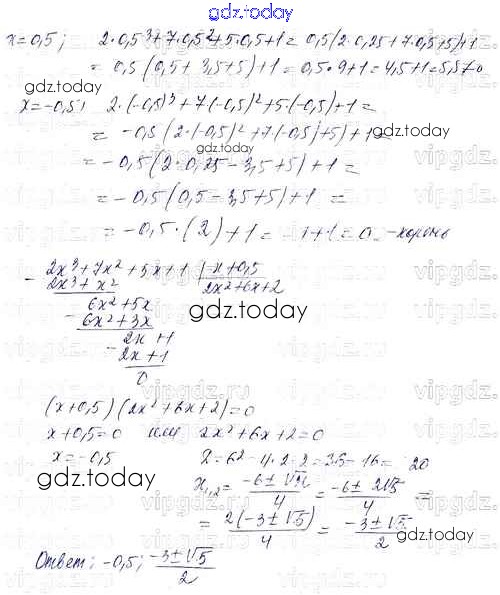 gdz.today
x=0,5; 2·0,5³+7·0,5²+5·0,5+1= 0,5(2·0,25+7·0,5+5)+1
= 0,5(0,5+3,5+5)+1=0,5·9+1=4,5+1=5,5≠0
gdz.today
x=-0,5; 2·(-0,5)³+7(-0,5)²+5·(-0,5)+1=
= -0,5(2·(-0,5)²+7(-0,5)+5)+1=
gdz.today
gdz.today
= -0,5(2·0,25-3,5+5)+1=
= -0,5(0,5-3,5+5)+1 =
= -0,5·(2)+1= -1+1=0 -корень
2x³+7x²+5x+1 | x+0,5
2x³+x² 2x²+6x+2
6x²+5x
gdz.today
6x²+3x
2x+1
2x+1
0
(x+0,5)(2x²+6x+2)=0
x+0,5=0 или 2x²+6x+2=0
x=-0,5 D=6²-4·2·2=36-16=20
gdz.today
x₁,₂= -6±√20/4 = -6±2√5/4 =
= 2(-3±√5)/4 = -3±√5/2
gdz.today
Ответ: -0,5; -3±√5/2
vipgdz.ru